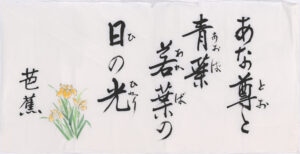 あな尊と
青葉
若葉の
日の光
芭蕉
とお
あおば
わかば
ひ
ひかり